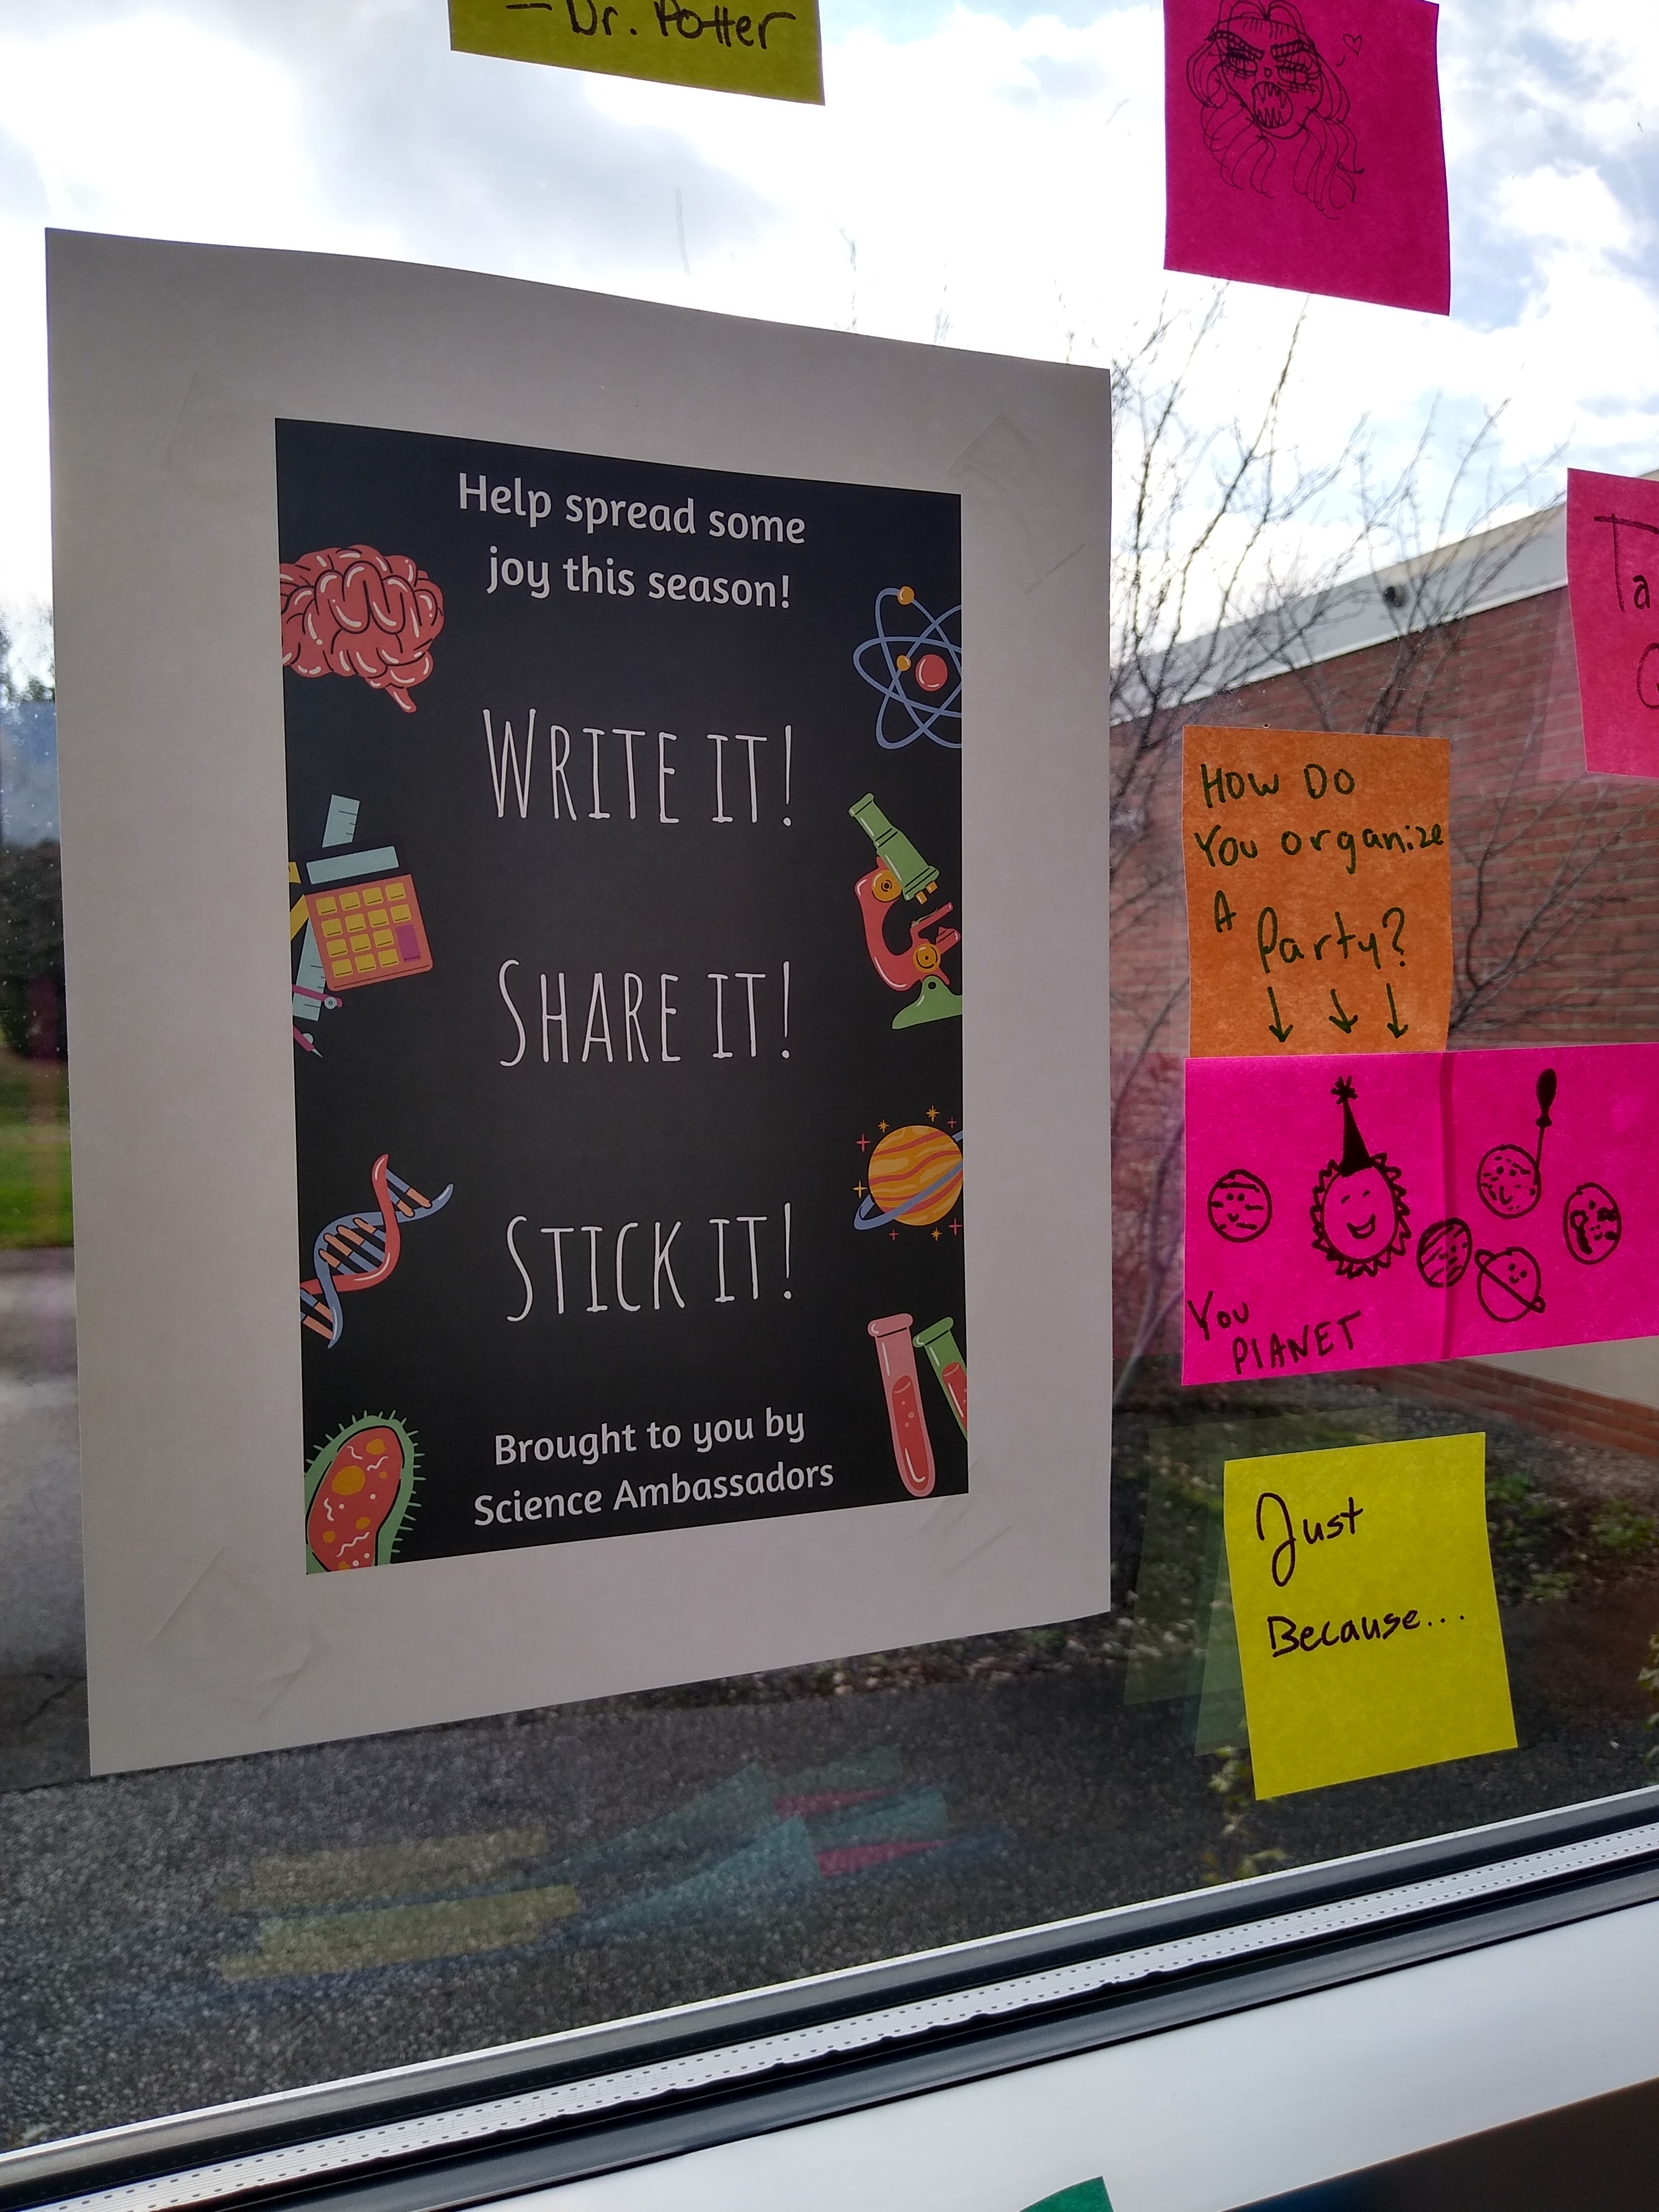 — Dr. Potter
Help spread some
joy this season!
WRITE IT!
SHARE IT!
STICK IT!
Brought to you by
Science Ambassadors
HOW DO
You organize
A Party?
You
PlANET
Just
Because...